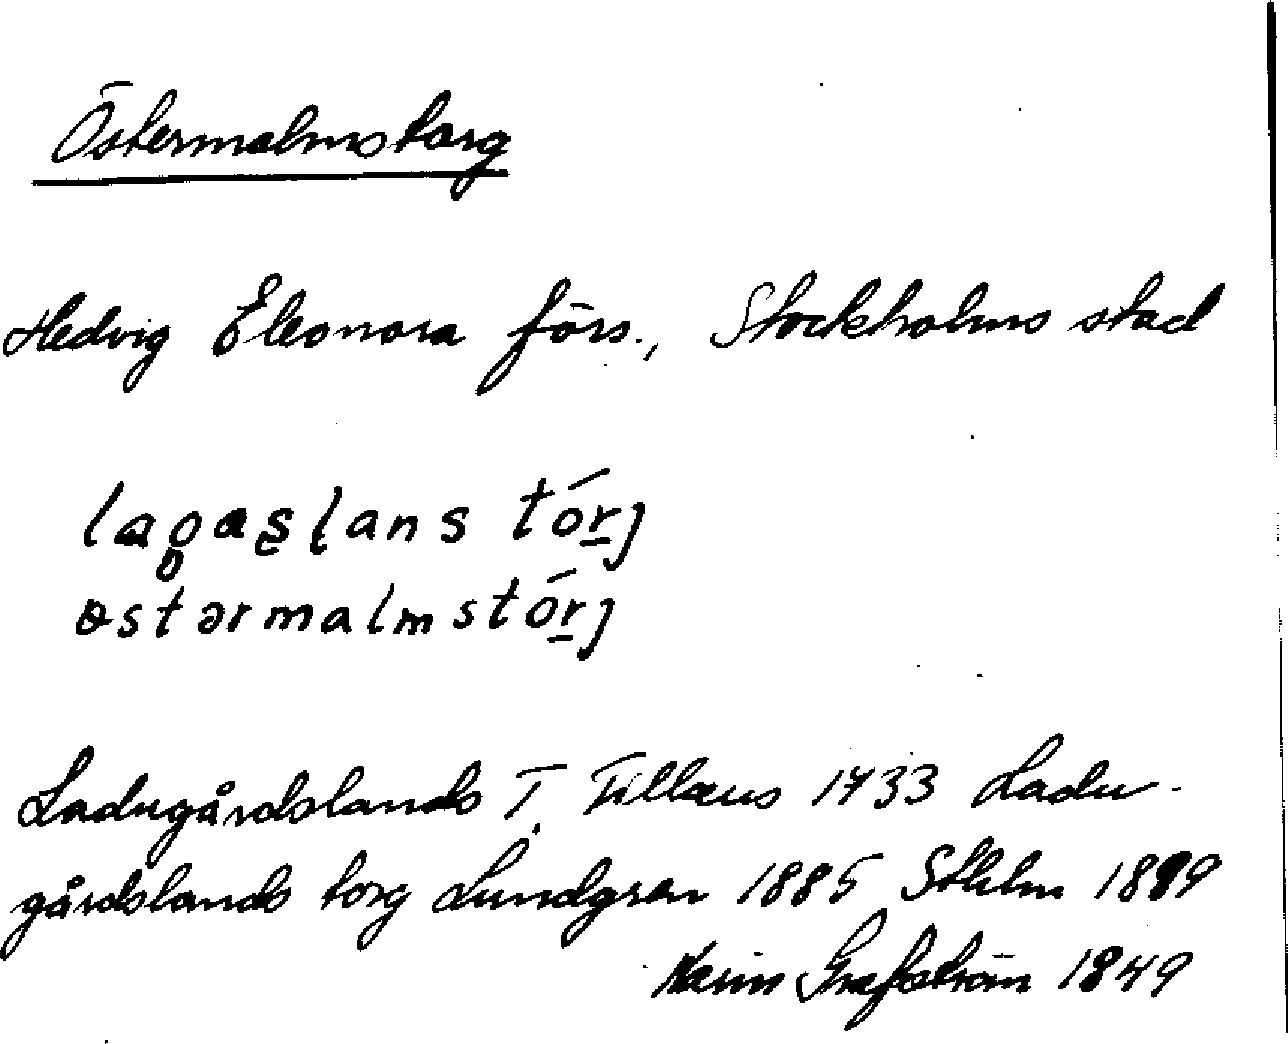 Östermalmstorg
Hedvig Eleonora förs., Stockholms stad
lagaslans tórj
østərmalmstórj
Ladugårdslands T. Tillæus 1733 Ladu-
gårdslands torg Lundgren 1885 Sthlm 1899
Karin Grafström 1849